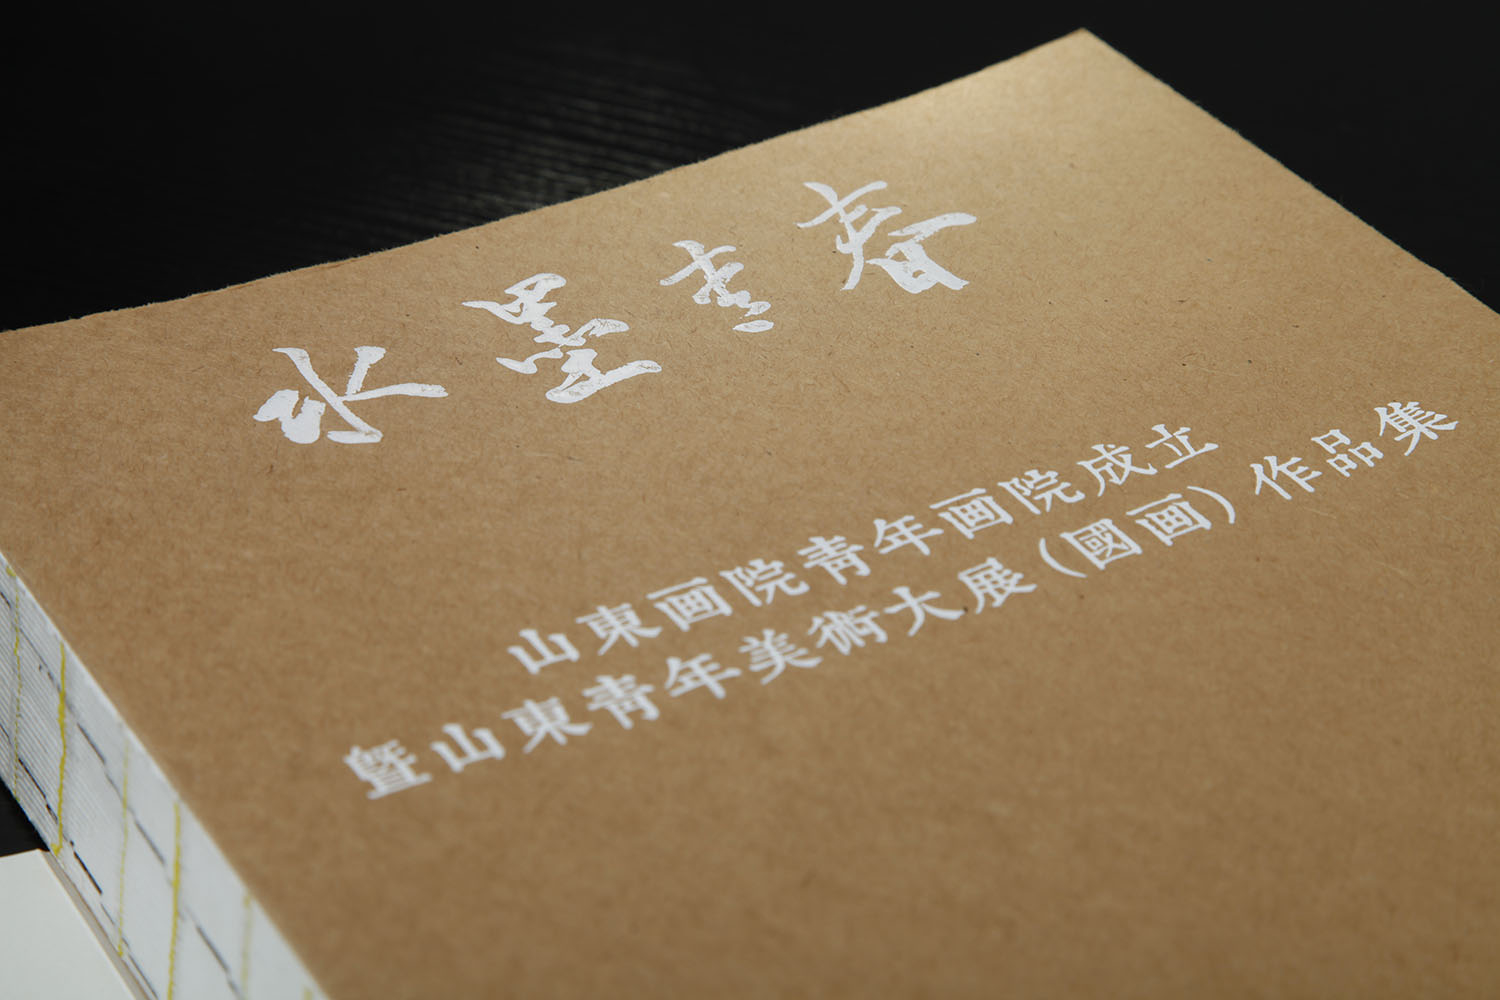 水墨青春
山東画院青年画院成立
暨山東青年美術大展（國画）作品集